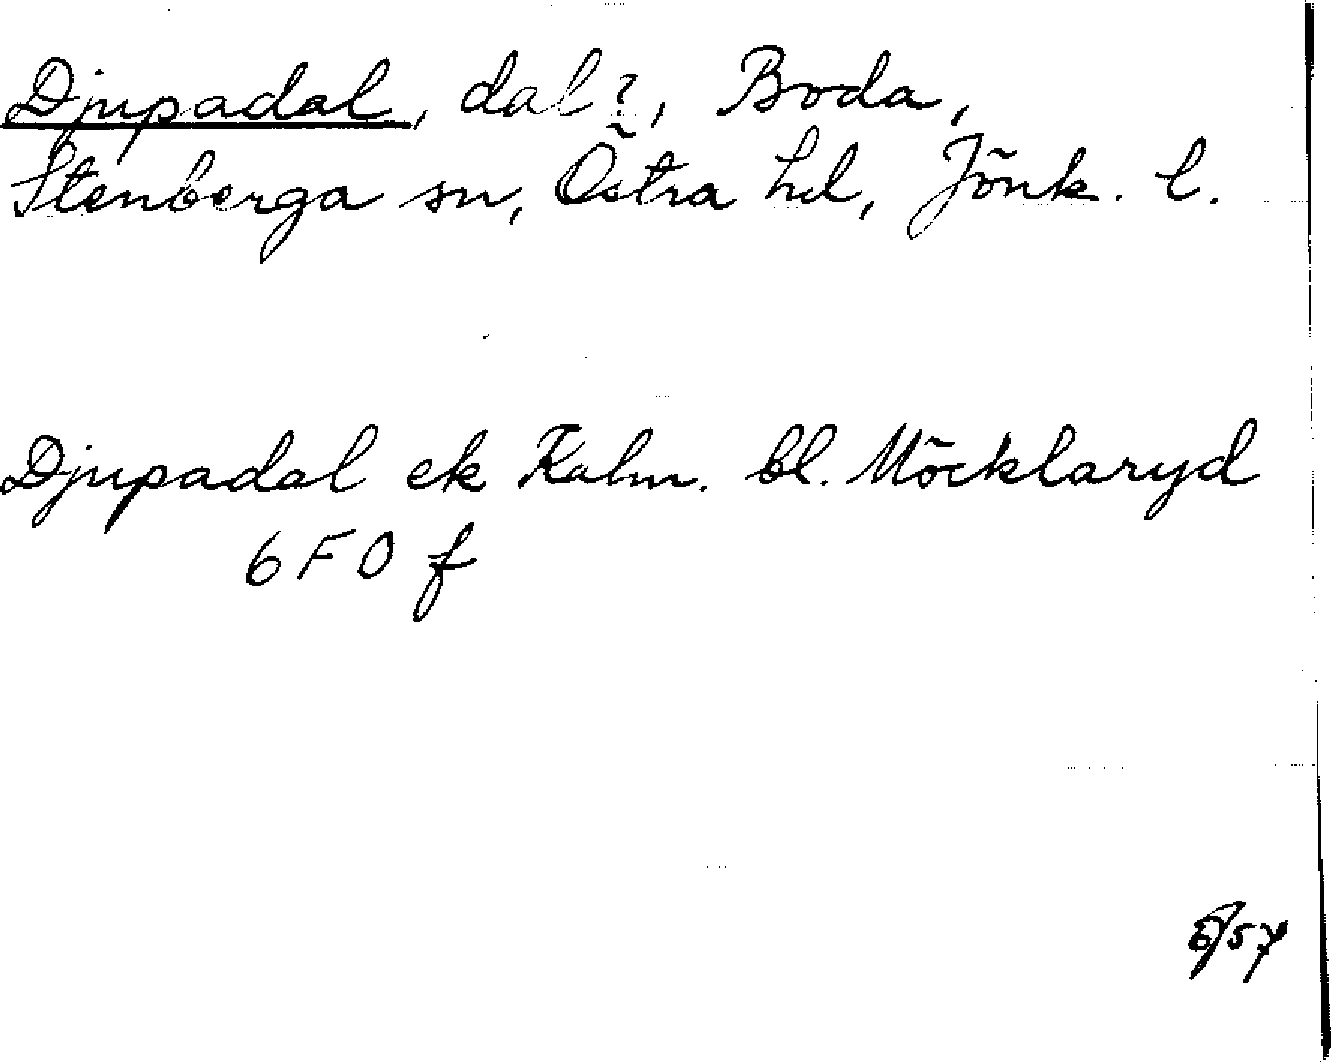 Djupadal, dal?, Boda,
Stenberga sn, Östra hd, Jönk. l.
Djupadal ek Kalm. bl. Möcklaryd
6 F 0 f
6/57